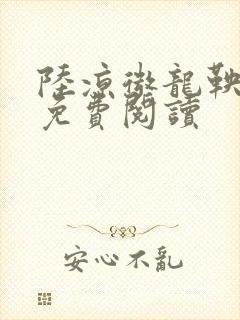 陸凉徹龍鞅
免費閱讀
安心不亂